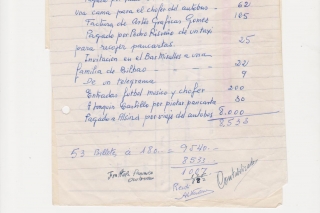 una cama para el chofer del autobus — 62
Factura de Artes Graficas Gomez 105
Pagado por Pedro de un taxi
para recoger pancartas. 25
Invitacion en el Bar a una
familia de Bilbao 22
De un telegrama 7
Entradas futbol y chofer 200
Joaquin Castillo por pintar pancarta 30
Pagado a por viaje del autobus 8.000
8533
53 Billetes a 180 — 9540.
8533
1007
Contabilizado